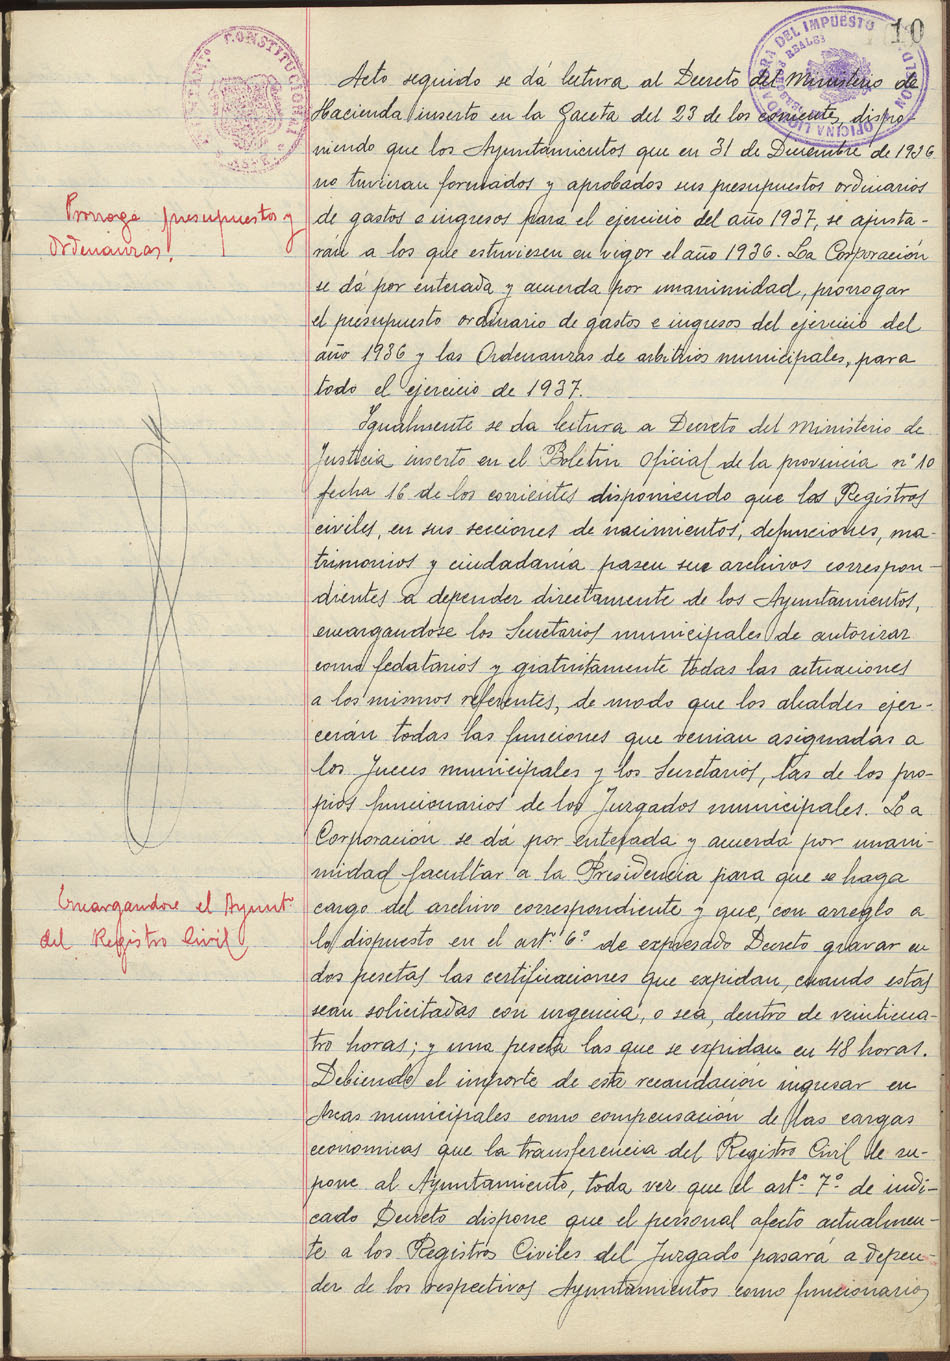 10
Acto seguido se dá lectura al Decreto del Ministerio de
Hacienda inserto en la Gaceta del 23 de los corrientes, dispo-
niendo que los Ayuntamientos que en 31 de Diciembre de 1936
no tuvieran formados y aprobados sus presupuestos ordinarios
Prorroga presupuestos y
Ordenanzas.
de gastos e ingresos para el ejercicio del año 1937, se ajusta-
rán a los que estuviesen en vigor el año 1936. La Corporación
se dá por enterada y acuerda por unanimidad, prorrogar
el presupuesto ordinario de gastos e ingresos del ejercicio del
año 1936 y las Ordenanzas de arbitrios municipales, para
todo el ejercicio de 1937.
Igualmente se da lectura a Decreto del Ministerio de
Justicia inserto en el Boletin Oficial de la provincia nº 10
fecha 16 de los corrientes disponiendo que los Registros
civiles, en sus secciones de nacimientos, defunciones, ma-
trimonios y ciudadanía pasen sus archivos correspon-
dientes a depender directamente de los Ayuntamientos,
encargandose los Secretarios municipales de autorizar
como fedatarios y gratuitamente todas las actuaciones
a los mismos referentes, de modo que los alcaldes ejer-
cerán todas las funciones que venian asignadas a
los Jueces municipales y los Secretarios, las de los pro-
pios funcionarios de los Juzgados municipales. La
Corporación se dá por enterada y acuerda por unani-
midad facultar a la Presidencia para que se haga
Encargandose el Ayuntº
del Registro Civil
cargo del archivo correspondiente y que, con arreglo a
lo dispuesto en el artº 6º de expresado Decreto gravar en
dos pesetas las certificaciones que expidan, cuando estas
sean solicitadas con urgencia, o sea, dentro de veinticua-
tro horas; y una peseta las que se expidan en 48 horas.
Debiendo el importe de esta recaudación ingresar en
Arcas municipales como compensación de las cargas
económicas que la transferencia del Registro Civil le su-
pone al Ayuntamiento, toda vez que el artº 7º de indi-
cado Decreto dispone que el personal afecto actualmen-
te a los Registros Civiles del Juzgado pasará a depen-
der de los respectivos Ayuntamientos como funcionarios